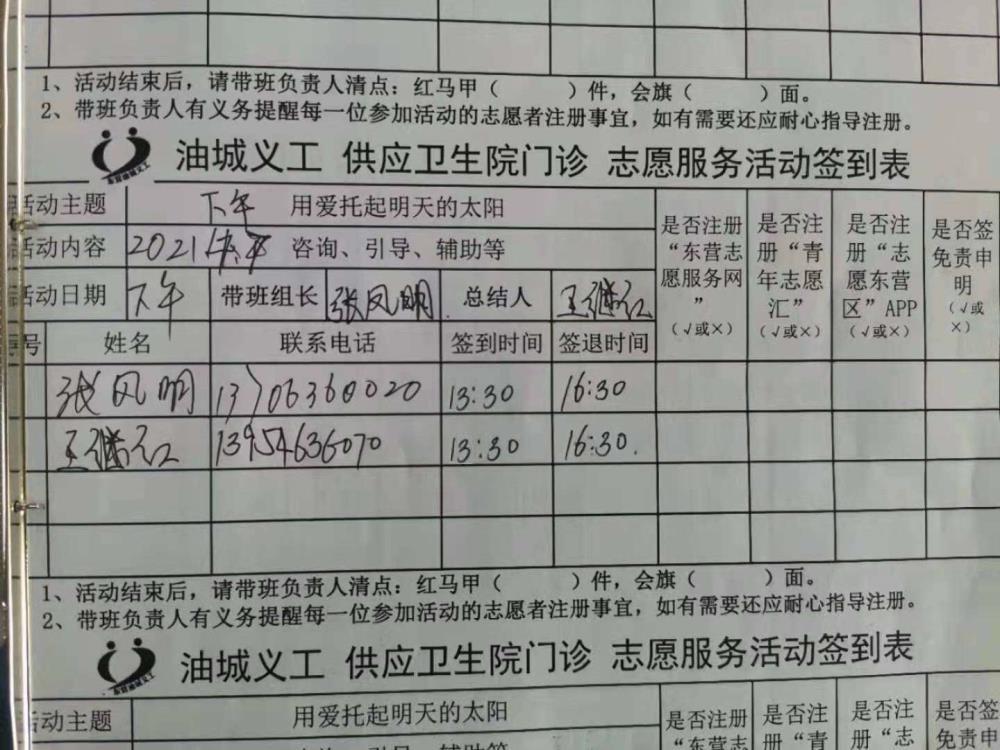 1、活动结束后，请带班负责人清点：红马甲（　　）件，会旗（　　）面。
2、带班负责人有义务提醒每一位参加活动的志愿者注册事宜，如有需要还应耐心指导注册。
油城义工 供应卫生院门诊 志愿服务活动签到表
东营油城义工
活动主题 下午 用爱托起明天的太阳
是否注册“东营志愿服务网”（√或×）
是否注册“青年志愿汇”（√或×）
是否注册“志愿东营区”APP（√或×）
是否签免责申明（√或×）
活动内容 2021 咨询、引导、辅助等
活动日期 下午 带班组长 张风明 总结人 王继红
号 姓名 联系电话 签到时间 签退时间
张风明 13706360020 13:30 16:30
王继红 13954636070 13:30 16:30.
1、活动结束后，请带班负责人清点：红马甲（　　）件，会旗（　　）面。
2、带班负责人有义务提醒每一位参加活动的志愿者注册事宜，如有需要还应耐心指导注册。
油城义工 供应卫生院门诊 志愿服务活动签到表
东营油城义工
活动主题 用爱托起明天的太阳
是否注册“东营志
是否注册“青
是否注册“志
是否签免责申
咨询、引导、辅助等